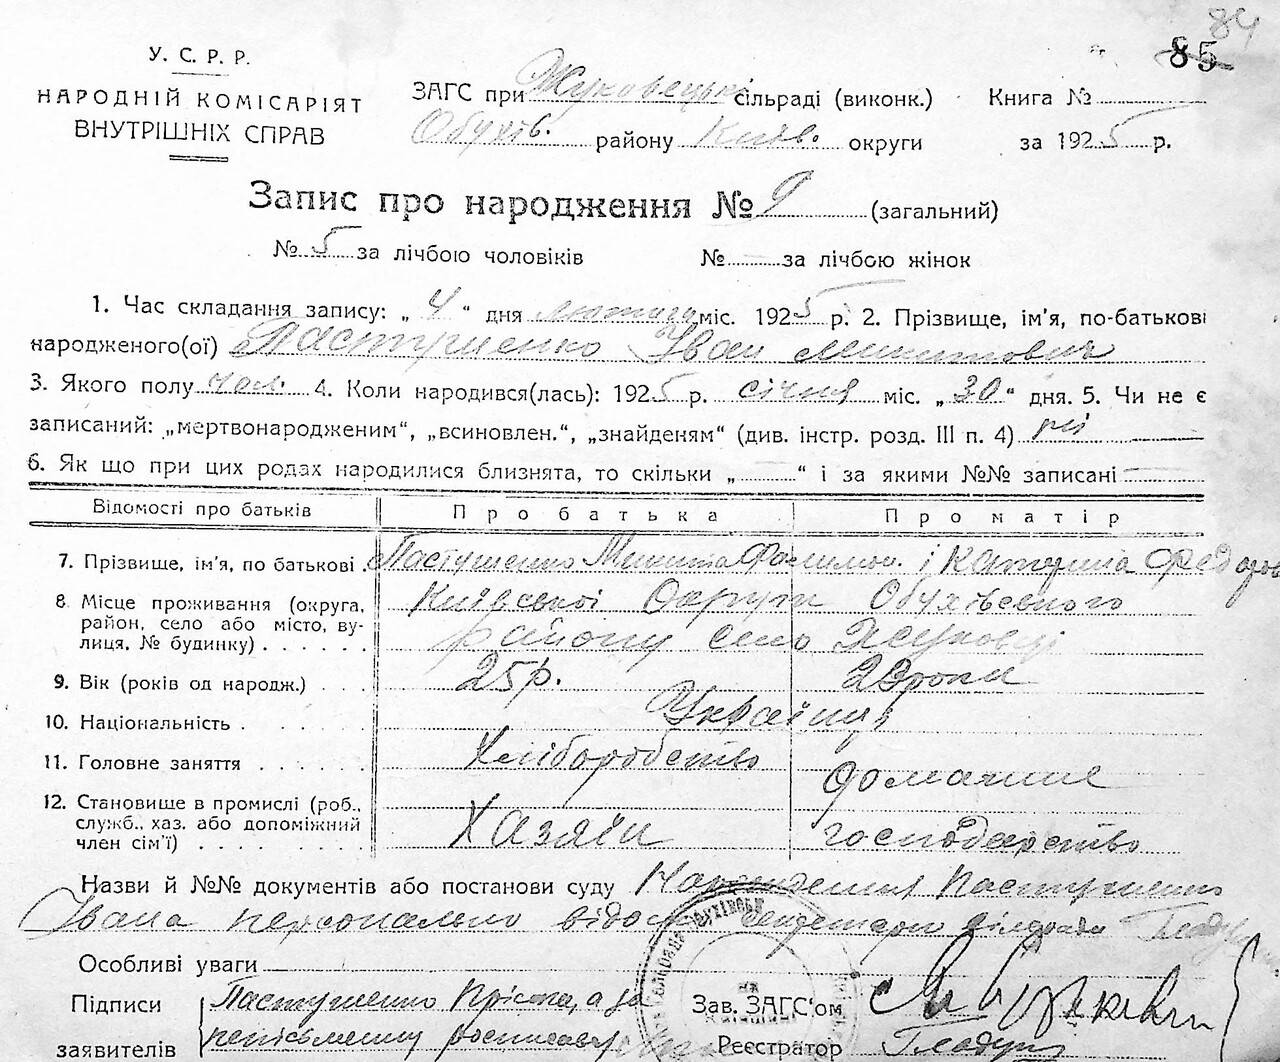 84
85
У. С. Р. Р.
НАРОДНІЙ КОМІСАРІЯТ
ВНУТРІШНІХ СПРАВ
ЗАГС при Жуковецькі сільраді (виконк.) Книга №
Обухів. району Київ. округи за 1925 р.
Запис про народження № 9 (загальний)
№ 5 за лічбою чоловіків № за лічбою жінок
1. Час складання запису: „ 4 " дня лютого міс. 1925 р. 2. Прізвище, ім'я, по-батькові
народженого(ої) Пастушенко Іван Микитович
3. Якого полу чол. 4. Коли народився(лась): 1925 р. січня міс. „ 30 " дня. 5. Чи не є
записаний: „мертвонародженим", „всиновлен.", „знайденям" (див. інстр. розд. III п. 4) ні
6. Як що при цих родах народилися близнята, то скільки „ " і за якими №№ записані
Відомості про батьків Про батька Про матір
7. Прізвище, ім'я, по батькові Пастушенко Микита і Катерина
8. Місце проживання (округа, Київської Округи Обухівського
район, село або місто, ву- району село Жуковці
лиця, № будинку)
9. Вік (років од народж.) 25р. 23 роки
10. Національність Українці
11. Головне заняття Хліборобство домашнє
12. Становище в промислі (роб., Хазяїн господарство
служб., хаз. або допоміжний
член сім'ї)
Назви й №№ документів або постанови суду Народження Пастушенко
Івана персонально відомо секретарю сільради
Особливі уваги
Підписи Пастушенко а за Зав. ЗАГС'ом
заявителів неписьменну росписався Реєстратор